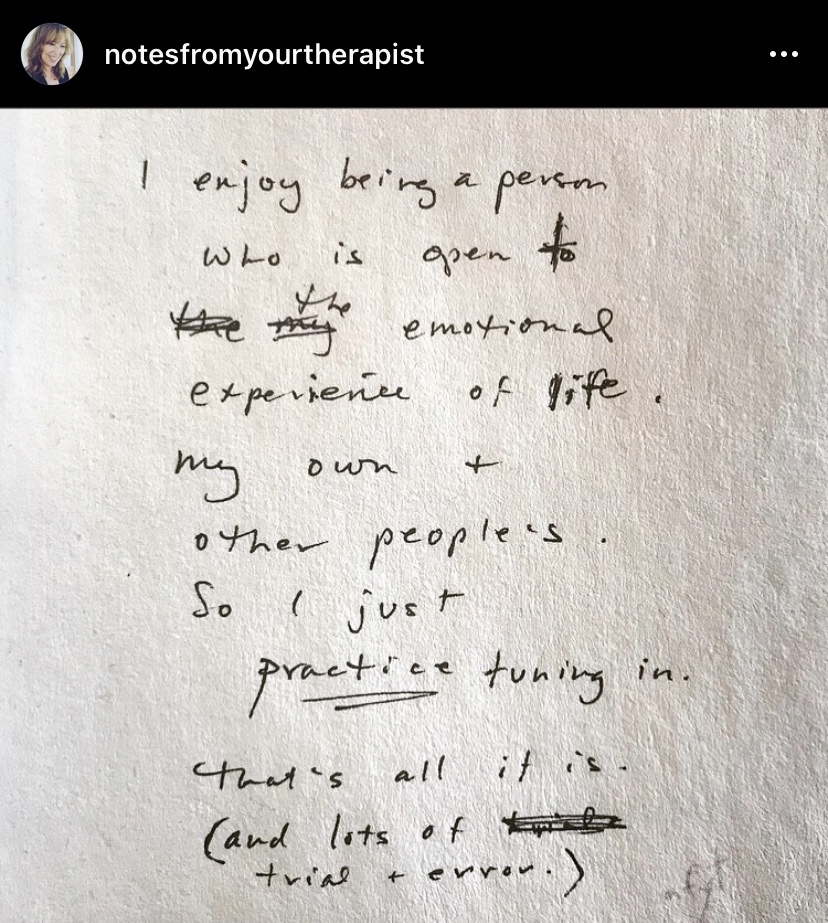 notesfromyourtherapist
I enjoy being a person
who is open to
the my the emotional
experience of life.
my own +
other people's.
So I just
practice tuning in.
that's all it is.
(and lots of
trial + error.)
nfyt